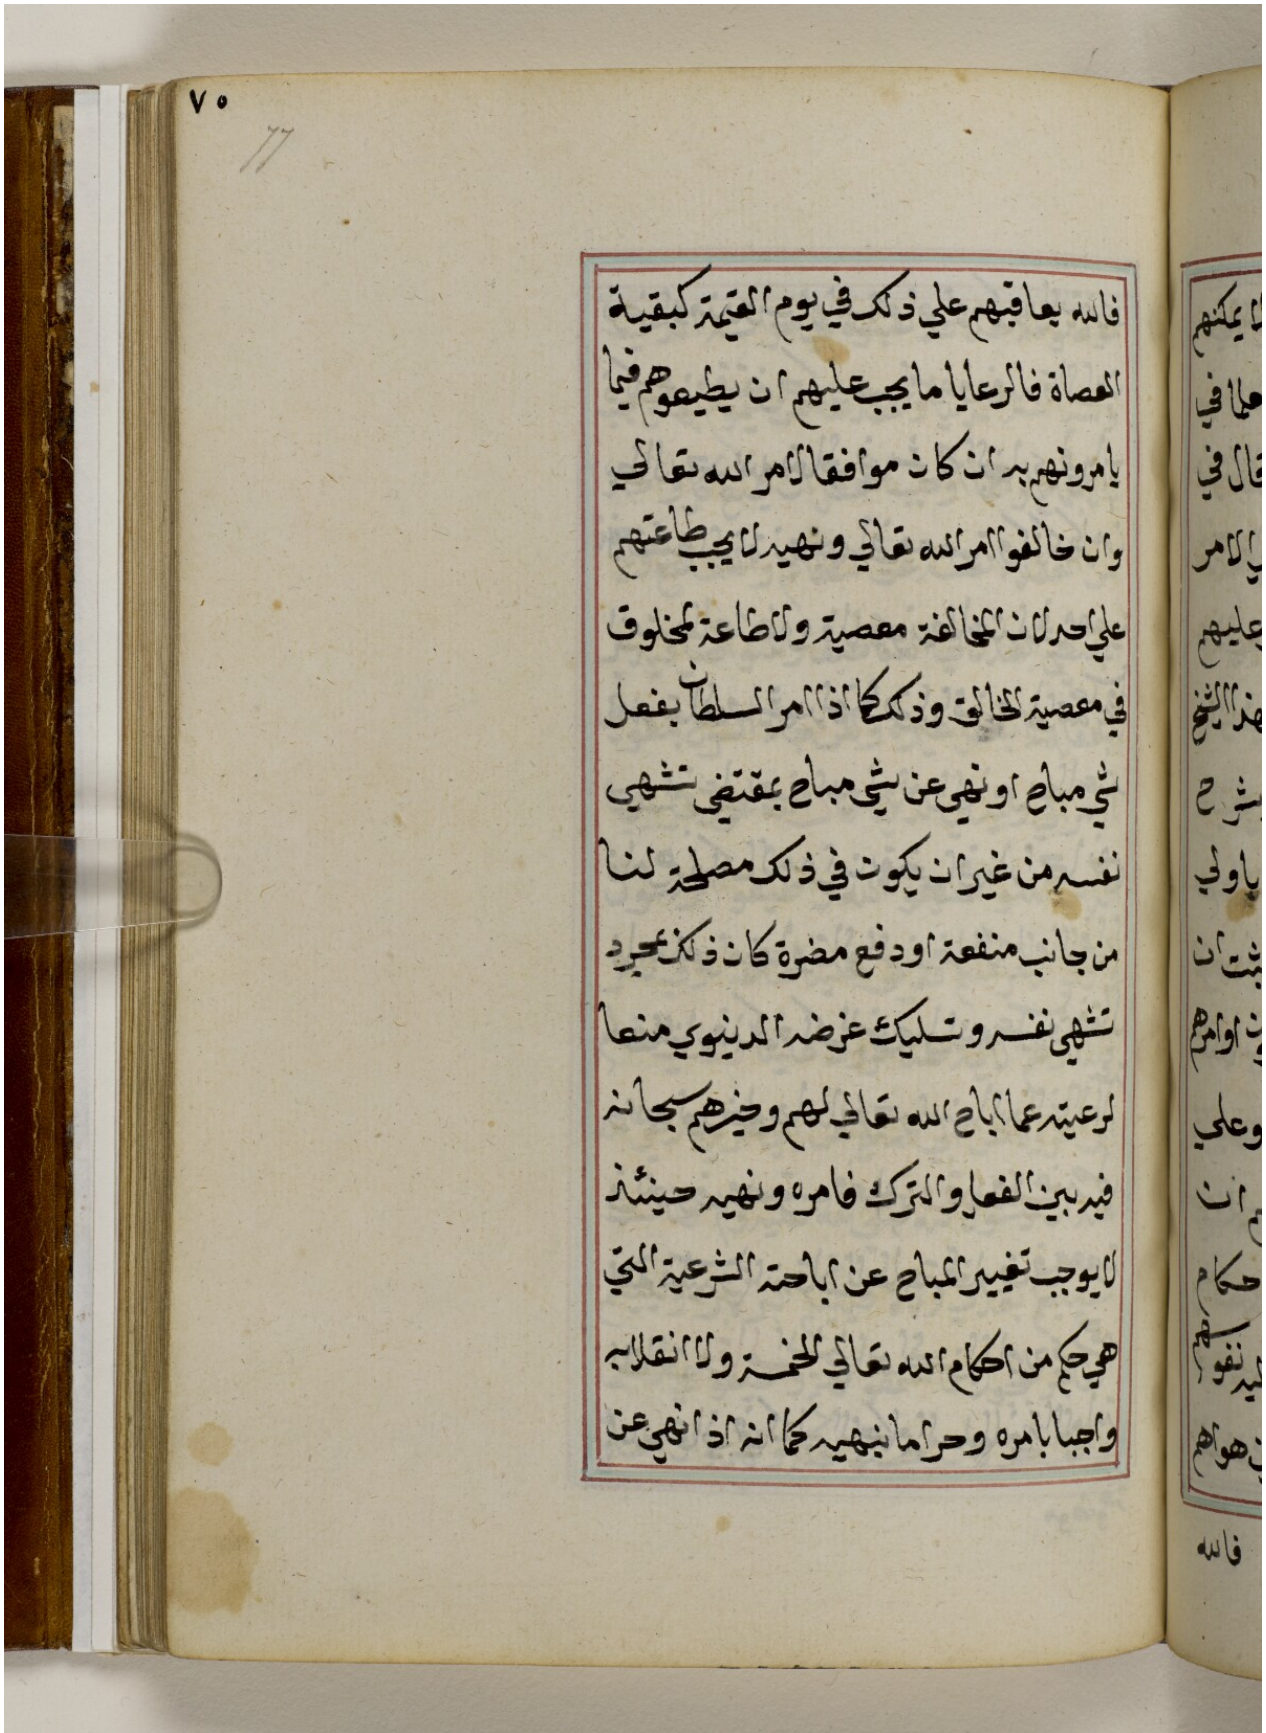 ٧٥
77
فالله يعاقبهم علي ذلك في يوم القيمة كبقية
العصاة فالرعايا ما يجب عليهم ان يطيعوهم فيما
يامرونهم به ان كان موافقا لامر الله تعالي
وان خالفوا امر الله تعالي ونهيه لا يجب طاعتهم
علي احد لان المخالفة معصية ولا طاعة لمخلوق
في معصية الخالق وذلك كما اذا امر السلطان بفعل
شي مباح او نهي عن شي مباح بمقتضي تشهي
نفسه من غير ان يكون في ذلك مصلحة لنا
من جانب منفعة او دفع مضرة كان ذلك بمجرد
تشهي نفسه وتسليك غرضه الدنيوي منعا
لرعيته عما اباح الله تعالي لهم وخيرهم سبحانه
فيه بين الفعل والترك فامره ونهيه حينئذ
لا يوجب تغيير المباح عن اباحته الشرعية التي
هي حكم من احكام الله تعالي الخمسة ولا انقلابه
واجبا بامره وحراما بنهيه كما انه اذا نهي عن
لا يمكنهم
في
قال في
الامر
عليهم
بهذا الشيخ
يشرح
ياولي
ان
اوامرهم
وعلي
ان
احكام
هواهم
فالله